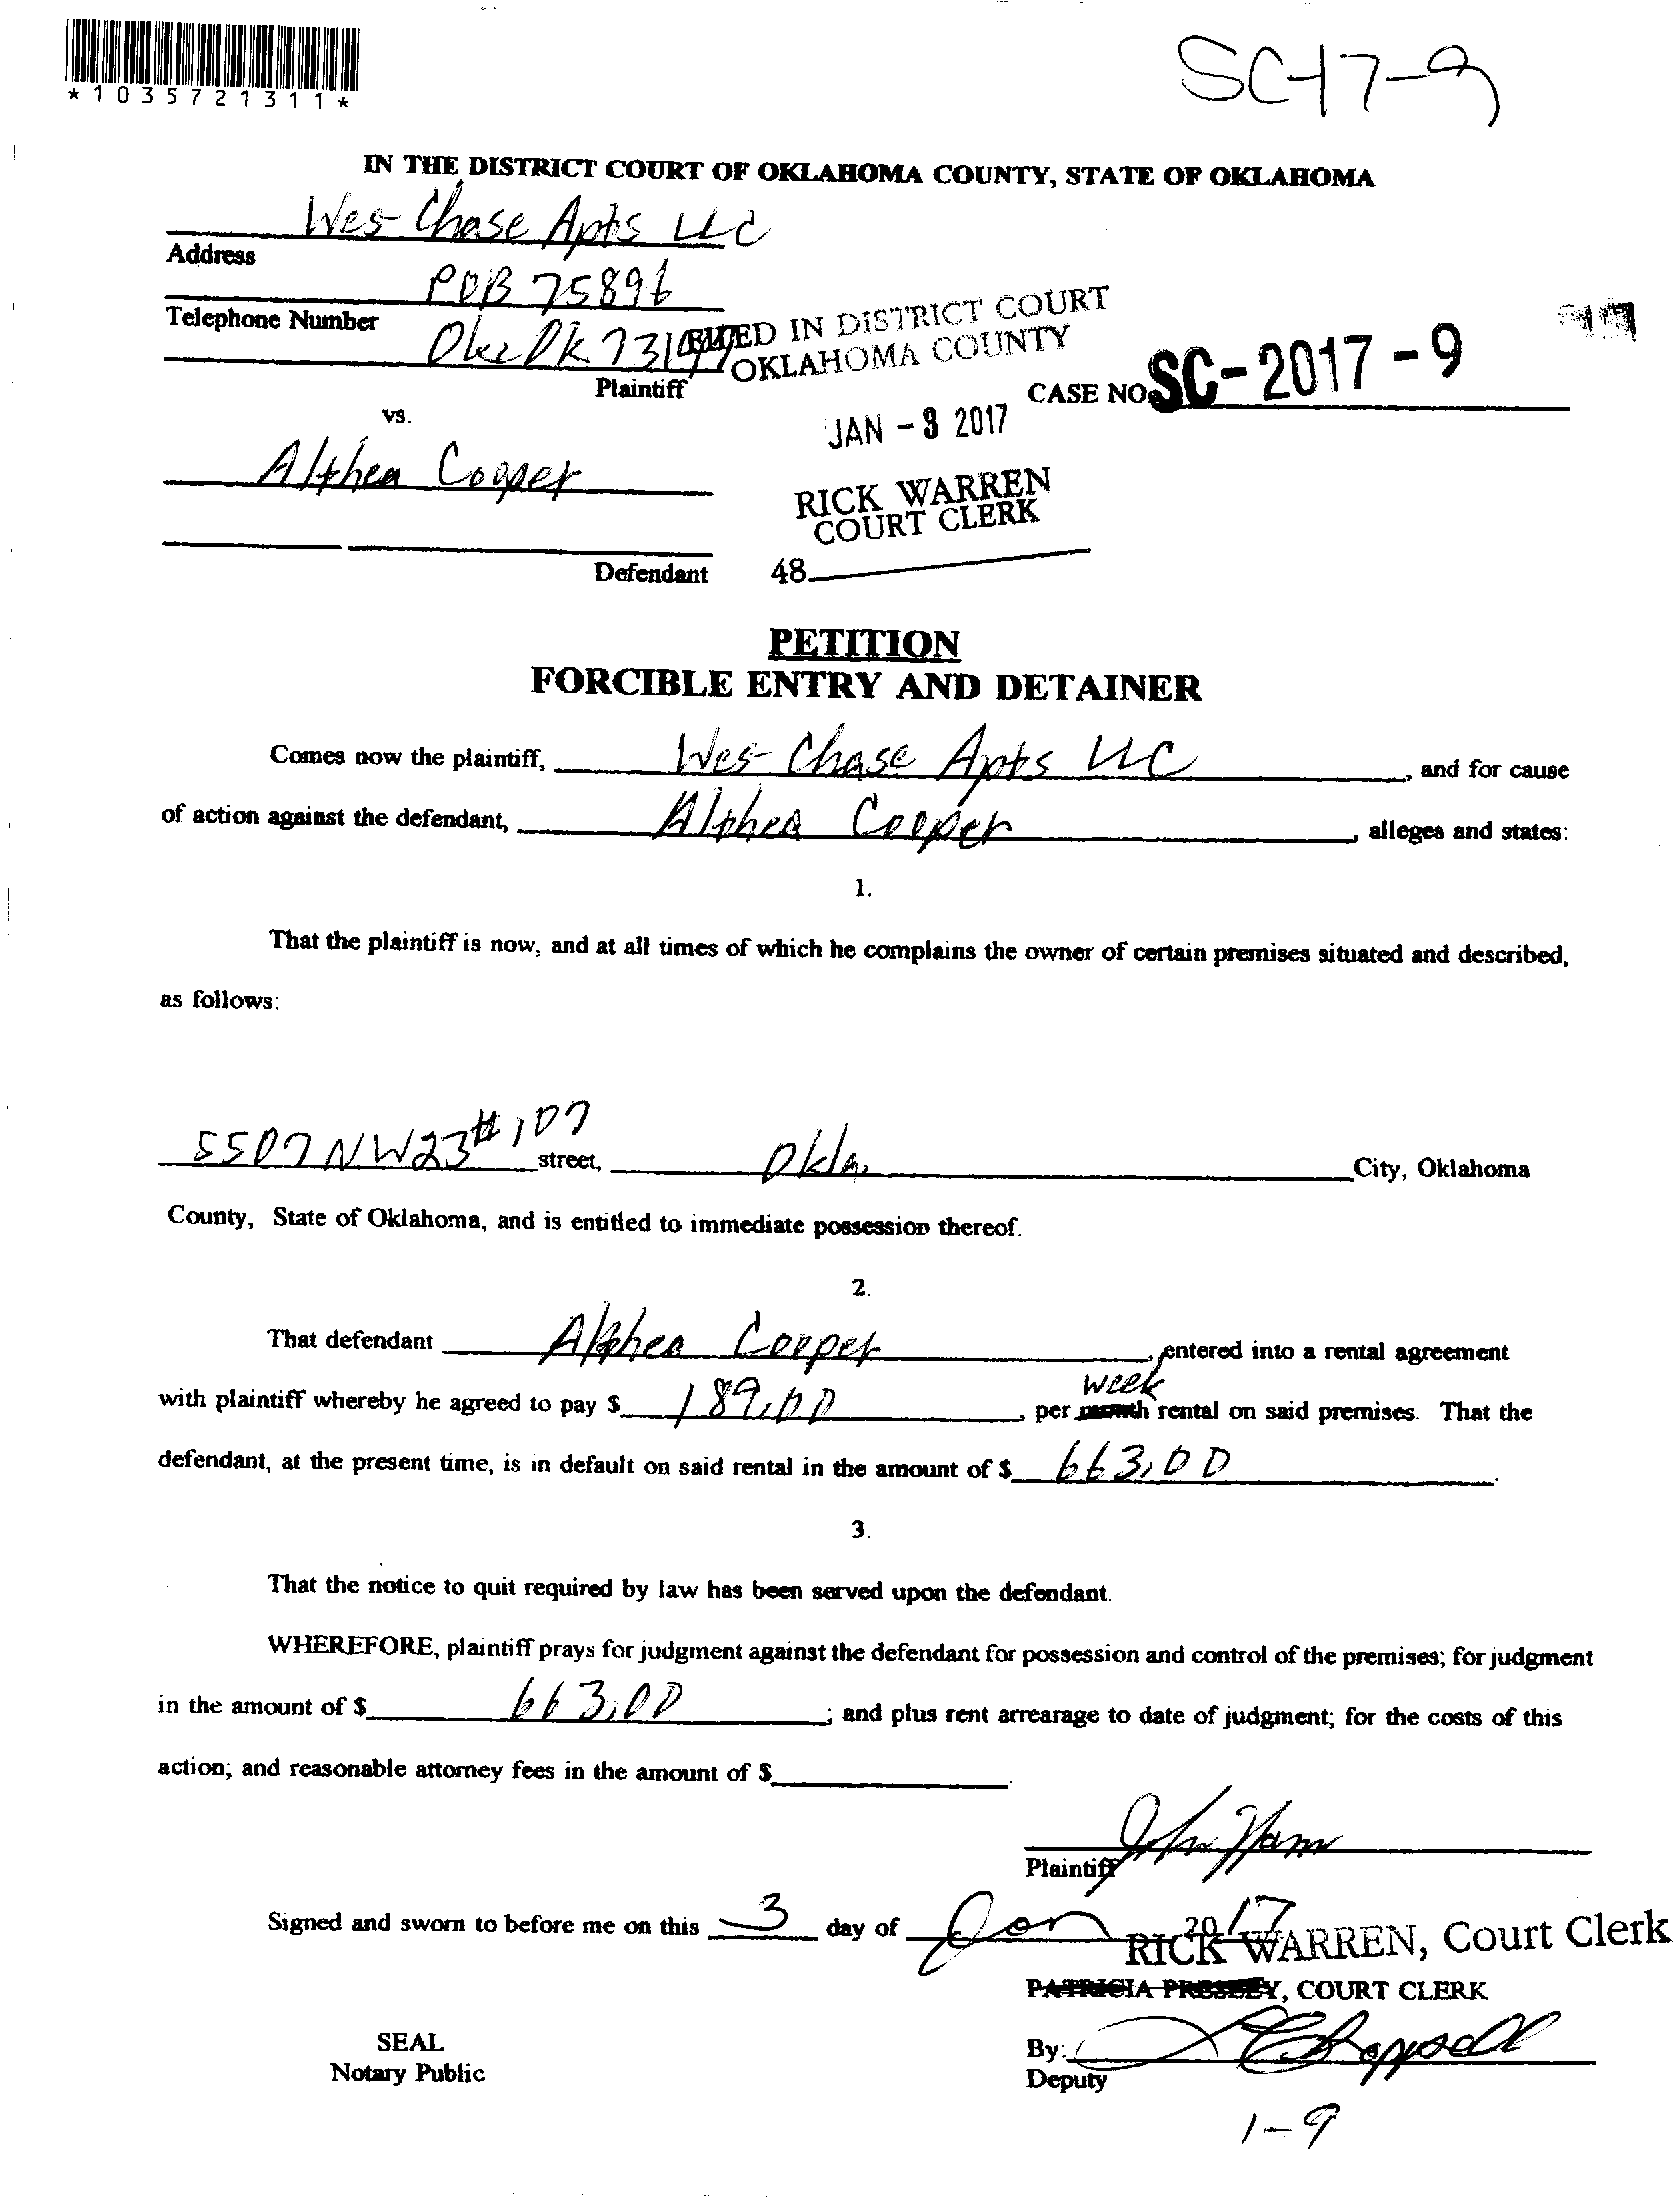 *1035721311*
SC-17-9
IN THE DISTRICT COURT OF OKLAHOMA COUNTY, STATE OF OKLAHOMA
Wes Chase Apts LLC
Address
POB 75896
Telephone Number
Okc Ok 73147
FILED IN DISTRICT COURT
OKLAHOMA COUNTY
Plaintiff
CASE NO. SC-2017-9
vs.
JAN -3 2017
Althea Cooper
RICK WARREN
COURT CLERK
Defendant
48
PETITION
FORCIBLE ENTRY AND DETAINER
Comes now the plaintiff, Wes Chase Apts LLC, and for cause
of action against the defendant, Althea Cooper, alleges and states:
1.
That the plaintiff is now, and at all times of which he complains the owner of certain premises situated and described,
as follows:
5507 NW 23 #107 street, Okla. City, Oklahoma
County, State of Oklahoma, and is entitled to immediate possession thereof.
2.
That defendant Althea Cooper, entered into a rental agreement
week
with plaintiff whereby he agreed to pay $ 189.00, per month rental on said premises. That the
defendant, at the present time, is in default on said rental in the amount of $ 663.00.
3.
That the notice to quit required by law has been served upon the defendant.
WHEREFORE, plaintiff prays for judgment against the defendant for possession and control of the premises; for judgment
in the amount of $ 663.00; and plus rent arrearage to date of judgment; for the costs of this
action; and reasonable attorney fees in the amount of $
Plaintiff
Signed and sworn to before me on this 3 day of Jan 2017
RICK WARREN, Court Clerk
PATRICIA PRESLEY, COURT CLERK
SEAL
Notary Public
By:
Deputy
1-9